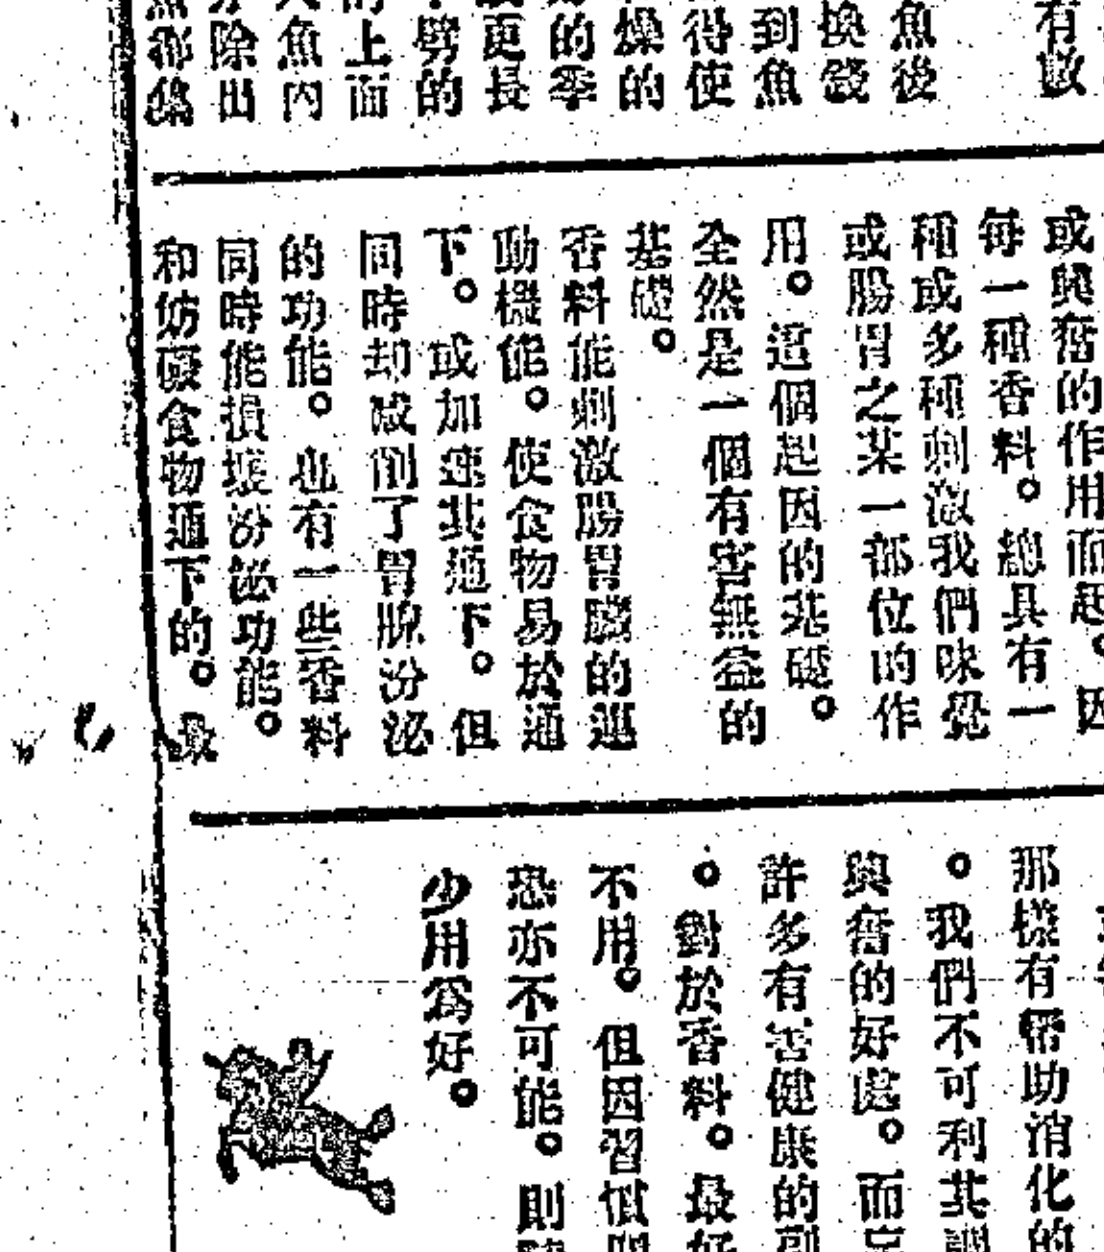 有數
魚後
換錢
到魚
得使
燥的
的季
更長
劈的
上面
魚內
除出
或興奮的作用而起。因
每一種香料。總具有一
種或多種刺激我們味覺
或腸胃之某一部位的作
用。這個起因的基礎。
全然是一個有害無益的
基礎。
香料能刺激腸胃臟的運
動機能。使食物易於通
下。或加速其通下。但
同時却减削了胃腺汾泌
的功能。也有一些香料
同時能損壞汾泌功能。
和妨礙食物通下的。最
那樣有幫助消化的
。我們不可利其
興奮的好處。而
許多有害健康的副
。對於香料。最好
不用。但因習慣
恐亦不可能。則
少用爲好。